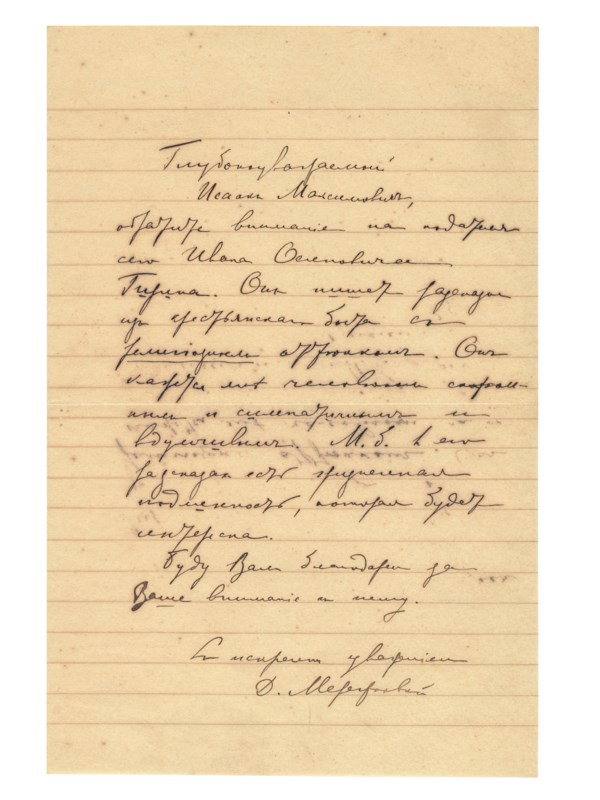 Глубокоуважаемый
Исаакъ Максимовичъ,
обратите вниманіе на подателя
сего Ивана Осиповича
Онъ пишетъ разсказы
изъ крестьянскаго быта съ
религіознымъ оттѣнкомъ. Онъ
кажется мнѣ человѣкомъ скром-
нымъ и симпатичнымъ и
вдумчивымъ. М. б. въ его
разсказахъ есть жизненная
подлинность, которая будетъ
интересна.
Буду Вамъ благодаренъ за
Ваше вниманіе къ нему.
Съ искреннимъ уваженіемъ
Д. Мережковскій